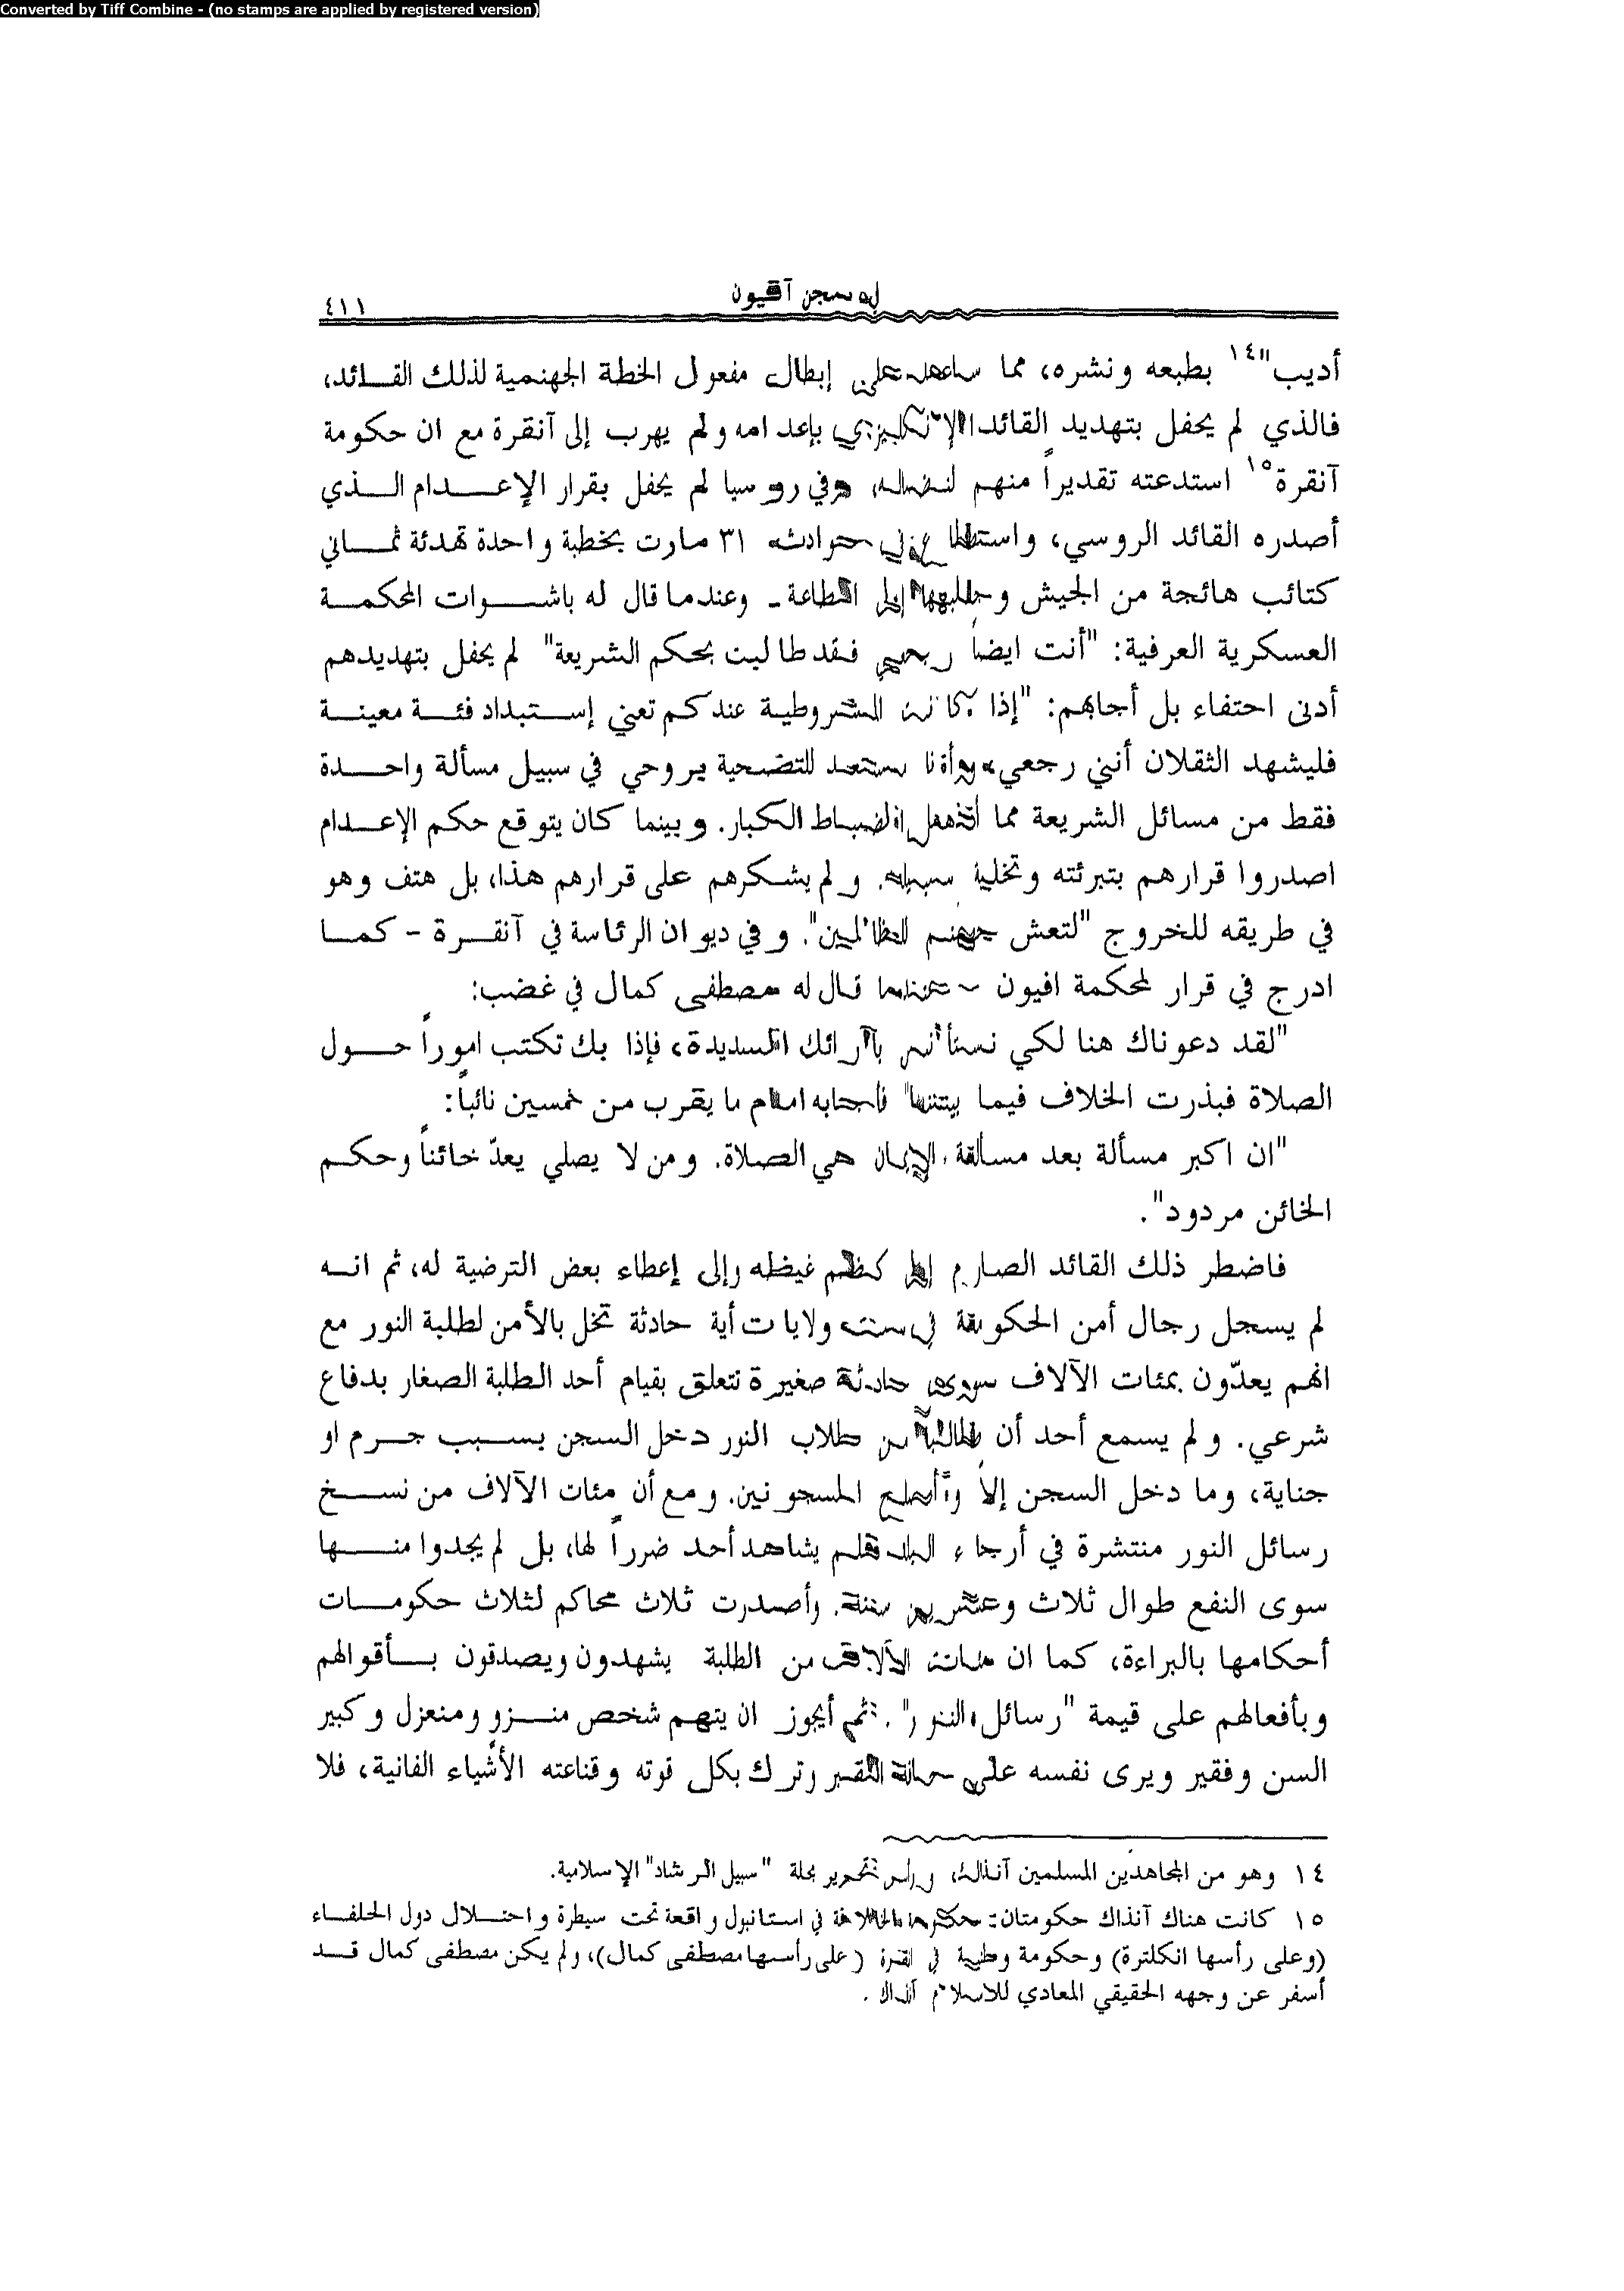 Converted by Tiff Combine - (no stamps are applied by registered version)
سجن آفيون
٤١١
أديب"١٤ بطبعه ونشره، مما ساعد على إبطال مفعول الخطة الجهنمية لذلك القــائد،
فالذي لم يحفل بتهديد القائد الإنكليزي بإعدامه ولم يهرب إلى آنقرة مع ان حكومة
آنقرة١٥ استدعته تقديراً منهم لنضاله، وفي روسيا لم يحفل بقرار الإعــدام الــذي
أصدره القائد الروسي، واستطاع في حوادث ٣١ مارت بخطبة واحدة تهدئة ثمــاني
كتائب هائجة من الجيش وجلبها إلى الطاعة - وعندما قال له باشــوات المحكمــة
العسكرية العرفية: "أنت ايضاً رجعي فقد طالبت بحكم الشريعة" لم يحفل بتهديدهم
أدنى احتفاء بل أجابهم: "إذا كانت المشروطية عندكم تعني إستبداد فئــة معينــة
فليشهد الثقلان أنني رجعي، وأنا مستعد للتضحية بروحي في سبيل مسألة واحــدة
فقط من مسائل الشريعة مما أذهل الضباط الكبار. وبينما كان يتوقع حكم الإعــدام
اصدروا قرارهم بتبرئته وتخلية سبيله. ولم يشــكرهم على قرارهم هذا، بل هتف وهو
في طريقه للخروج "لتعش جهنم للظالمين". وفي ديوان الرئاسة في آنقــرة - كمــا
ادرج في قرار لمحكمة افيون - عندما قال له مصطفى كمال في غضب:
"لقد دعوناك هنا لكي نستأنس بآرائك السديدة، فإذا بك تكتب اموراً حــول
الصلاة فبذرت الخلاف فيما بيننا" فأجابه امام ما يقرب من خمسين نائباً:
"ان اكبر مسألة بعد مسألة الإيمان هي الصلاة. ومن لا يصلي يعدّ خائناً وحكم
الخائن مردود".
فاضطر ذلك القائد الصارم إلى كظم غيظه وإلى إعطاء بعض الترضية له، ثم انــه
لم يسجل رجال أمن الحكومة في ست ولايات أية حادثة تخل بالأمن لطلبة النور مع
انهم يعدّون بمئات الآلاف سوى حادثة صغيرة تتعلق بقيام أحد الطلبة الصغار بدفاع
شرعي. ولم يسمع أحد أن طالباً من طلاب النور دخل السجن بســبب جــرم او
جناية، وما دخل السجن إلا وأصلح المسجونين. ومع أن مئات الآلاف من نســخ
رسائل النور منتشرة في أرجاء البلاد فلم يشاهد أحد ضرراً لها، بل لم يجدوا منــها
سوى النفع طوال ثلاث وعشرين سنة. وأصدرت ثلاث محاكم لثلاث حكومــات
أحكامها بالبراءة، كما ان مئات الآلاف من الطلبة يشهدون ويصدقون بــأقوالهم
وبأفعالهم على قيمة "رسائل النور". ثم أيجوز ان يتهم شخص منــزوٍ ومنعزل وكبير
السن وفقير ويرى نفسه على حافة القبر وترك بكل قوته وقناعته الأشياء الفانية، فلا
١٤ وهو من المجاهدين المسلمين آنذاك، ورأس تحرير مجلة "سبيل الرشاد" الإسلامية.
١٥ كانت هناك آنذاك حكومتان: حكومة الخلافة في استانبول واقعة تحت سيطرة واحتــلال دول الحلفــاء
(وعلى رأسها انكلترة) وحكومة وطنية في انقرة (على رأسها مصطفى كمال)، ولم يكن مصطفى كمال قــد
أسفر عن وجهه الحقيقي المعادي للاسلام آنذاك .